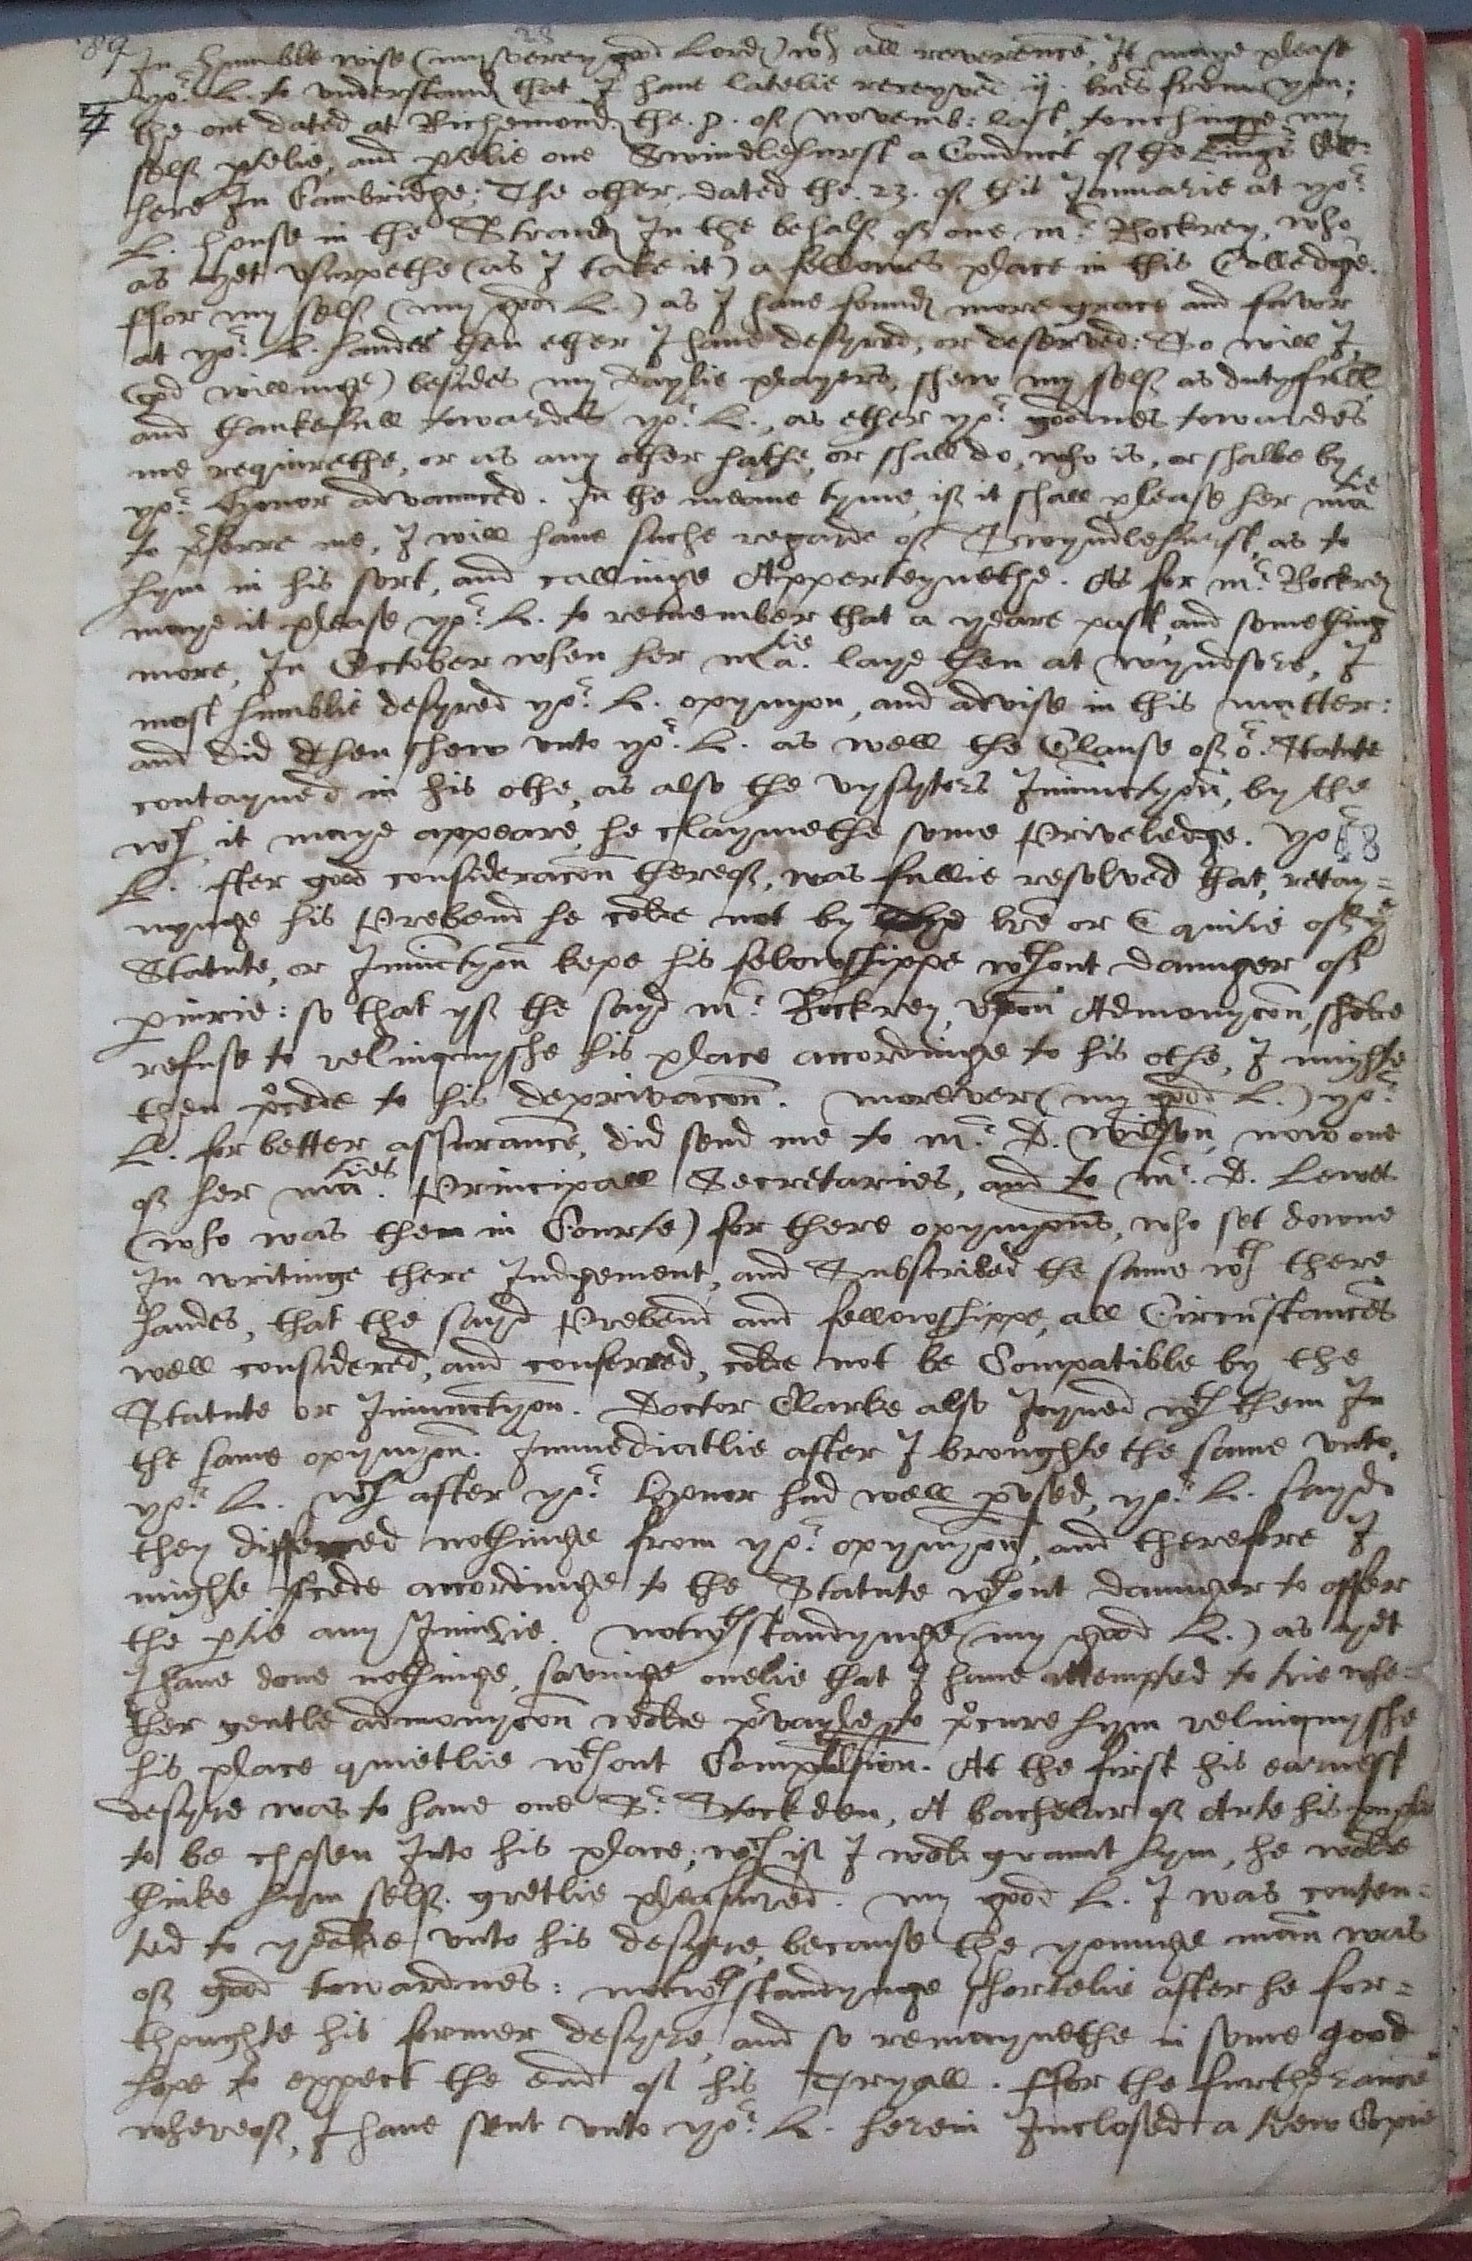 89 23
In humble wise (my verey good Lord) wth all reverence, It maye please
yor. L. to understand that I have latelie receyved .ij. lres frome you;
the one dated at Richemond, the .8. of Novemb: last, touchinge my
self ptelie, and ptelie one Swindlehurst a Conduct of the Kings Coll:
here In Cambridge; The other dated the .23. of this Januarie at yor
L. house in the Strand, In the behalf of one mr. Rockrey, who
as yet usurpethe (as I take it) a fellowes place in this Colledge.
ffor my self (my good L.) as I have found more grace and favor
at yor. L. handes then ether I have desyred, or deserved: So will I,
(god willinge) besides my daylie prayers, shew my self as dutyfull
and thankefull towardes yor. L., as ether yor. goodnes towardes
me requirethe, or as any other hathe, or shall do, who is, or shalbe by
yor. Honor advaunced. In the meane tyme, if it shall please her matie
to pferre me, I will have suche regarde of Swyndlehurst, as to
hym in his sort, and callinge Apperteynethe. As for mr. Rockrey
maye it please yor. L. to remember that a yeare past, and something
more, In October when her matie. laye then at Wyndsore, I
most humblie desyred yor. L. opynyon, and advise in this matter:
and did then shew unto yor. L. as well the Clause of or. Statute
contayned in his othe, as also the vysyters Iniunctyon, by the
wch, it maye appeare, he claymethe some Priveledge. yor
58
L. after good consideracon thereof, was fullie resolved that, retay=
nynge his Prebend he colde not by the lre or Equitie of ye
Statute, or Iniunctyon kepe his felowshippe wthout daunger of
piurie: so that yf the sayd mr. Rockrey, upon Admonycon, sholde
refuse to relinquyshe his place accordinge to his othe, I mighte
then pcede to his deprivacon. Moreover (my good L.) yor.
L. for better assurance, did send me to mr. D. Wilson, now one
of her maties. Principall Secretaries, and to mr. D. Lewes
(who was then in Courte) for there opynyons, who set downe
In writinge there Iudgement, and Subscribed the same wth there
handes, that the sayd Prebend and fellowshippe, all Circumstances
well considered, and conferred, colde not be Compatible by the
Statute or Iniunctyon. Doctor Clarke also Ioyned wth them In
the same opynyon. Immediatlie after I broughte the same unto
yor. L. wch after yor. Honor had well pused, yor. L. sayd
they differred nothinge from yor. opynyon, and therefore I
mighte pcede accordinge to the Statute wthout daunger to offer
the ptie any Iniurie. Notwthstandynge (my good L.) as yet
I have done nothinge, savinge onelie that I have attempted to trie whe=
ther gentle admonycon wolde pvayle to pcure hym relinquyshe
his place quietlie wthout Compulsion. At the first his earnest
desyre was to have one Sr. Stockden, A bachelur of Arte his
to be chosen Into his place; wch if I wold graunt hym, he wolde
thinke hym self gretlie pleasured. My good L. I was conten=
ted to yealde unto his desyre, because the younge man was
of good towardnes: notwthstandynge shortelie after he for=
thoughte his former desyre, and so remaynethe in some good
hope to expect the end of his Tryall. ffor the furtherance
whereof, I have sent unto yor. L. herein Inclosed a new Copie